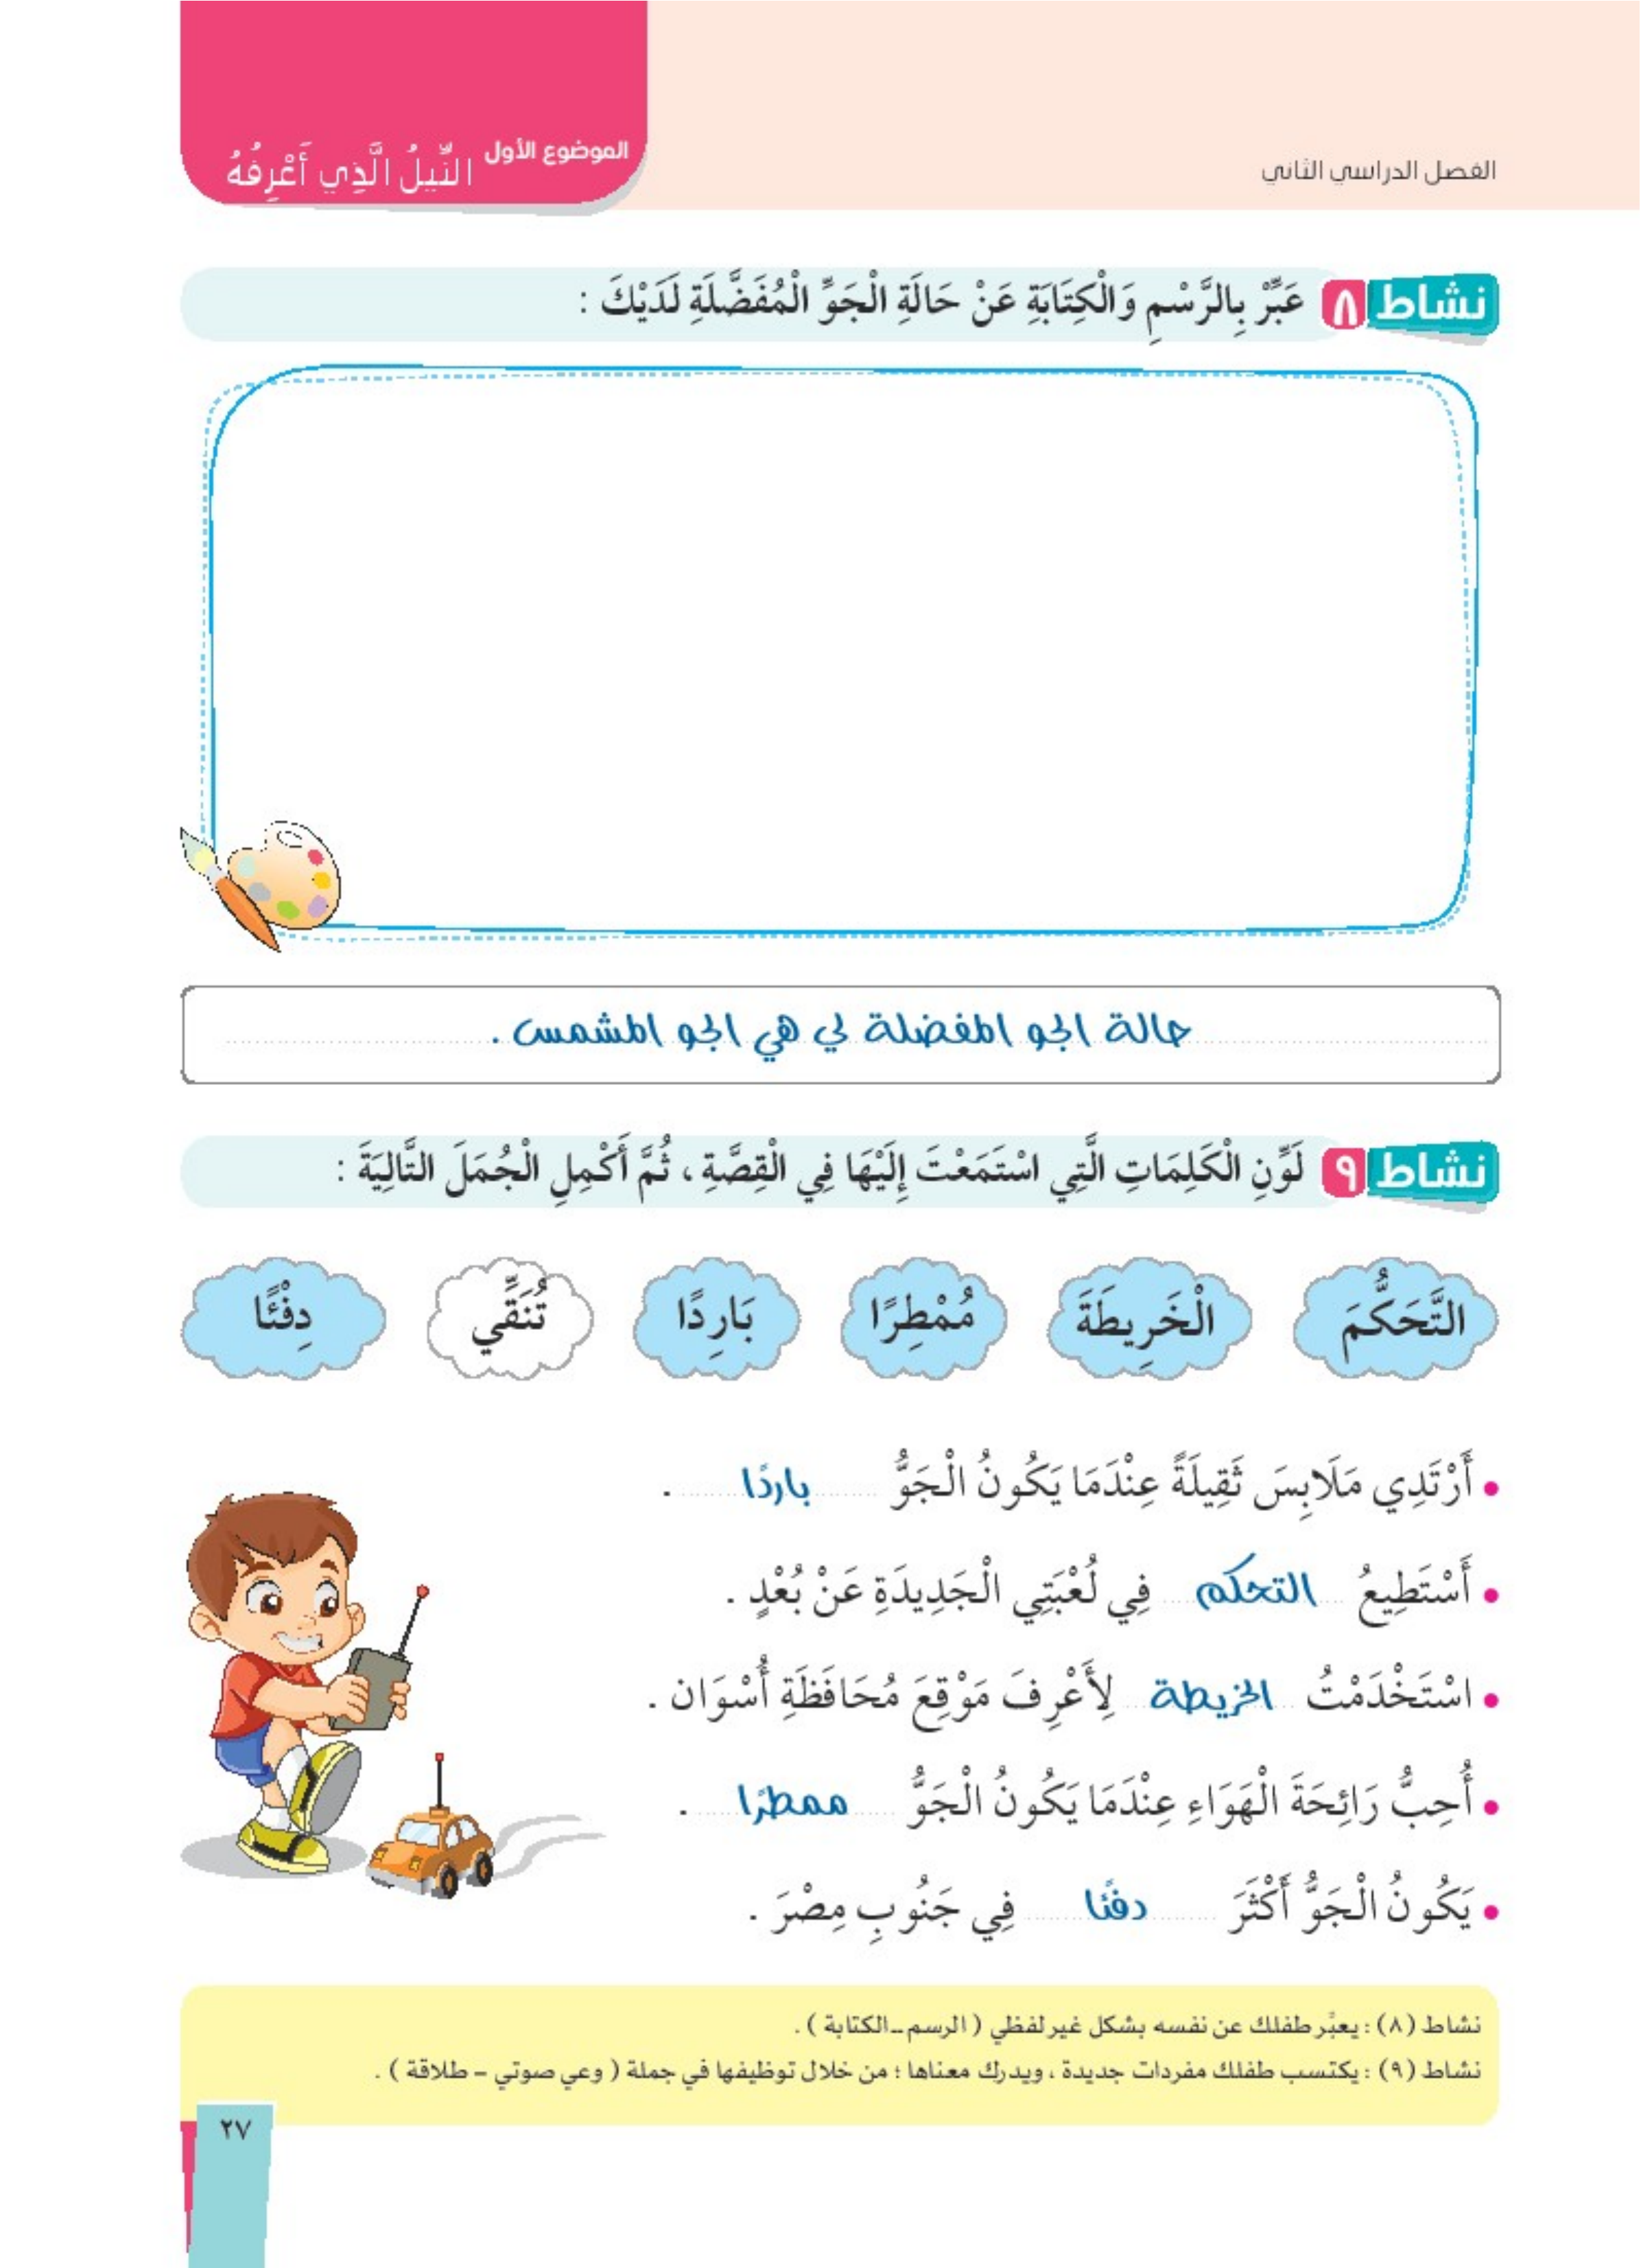 الفصل الدراسي الثاني
الموضوع الأول النِّيلُ الَّذِي أَعْرِفُهُ
نشاط ٨ عَبِّرْ بِالرَّسْمِ وَالْكِتَابَةِ عَنْ حَالَةِ الْجَوِّ الْمُفَضَّلَةِ لَدَيْكَ :
حالة الجو المفضلة لي هي الجو المشمس .
نشاط ٩ لَوِّنِ الْكَلِمَاتِ الَّتِي اسْتَمَعْتَ إِلَيْهَا فِي الْقِصَّةِ ، ثُمَّ أَكْمِلِ الْجُمَلَ التَّالِيَةَ :
التَّحَكُّمَ الْخَرِيطَةَ مُمْطِرًا بَارِدًا تُنَقِّي دِفْئًا
• أَرْتَدِي مَلَابِسَ ثَقِيلَةً عِنْدَمَا يَكُونُ الْجَوُّ باردًا .
• أَسْتَطِيعُ التحكم فِي لُعْبَتِي الْجَدِيدَةِ عَنْ بُعْدٍ .
• اسْتَخْدَمْتُ الخريطة لِأَعْرِفَ مَوْقِعَ مُحَافَظَةِ أُسْوَان .
• أُحِبُّ رَائِحَةَ الْهَوَاءِ عِنْدَمَا يَكُونُ الْجَوُّ ممطرًا .
• يَكُونُ الْجَوُّ أَكْثَرَ دفئًا فِي جَنُوبِ مِصْرَ .
نشاط (٨) : يعبِّر طفلك عن نفسه بشكل غير لفظي ( الرسم ـ الكتابة ) .
نشاط (٩) : يكتسب طفلك مفردات جديدة ، ويدرك معناها ؛ من خلال توظيفها في جملة ( وعي صوتي – طلاقة ) .
٢٧